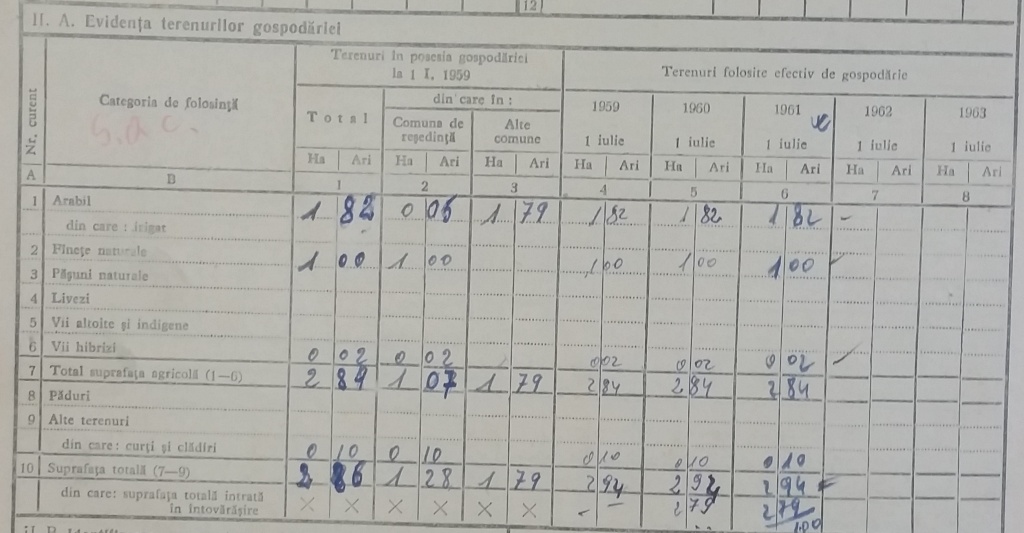 12
II. A. Evidența terenurilor gospodăriei
Nr. curent
Categoria de folosință
Terenuri în posesia gospodăriei
la 1 I. 1959
Terenuri folosite efectiv de gospodărie
Total
din care în :
Comuna de
reședință
Alte
comune
1959
1 iulie
1960
1 iulie
1961
1 iulie
1962
1 iulie
1963
1 iulie
Ha Ari Ha Ari Ha Ari Ha Ari Ha Ari Ha Ari Ha Ari Ha Ari
A B 1 2 3 4 5 6 7 8
1 Arabil 1 82 0 05 1 79 1 82 1 82 1 82 -
din care : irigat
2 Fînețe naturale 1 00 1 00 1 00 1 00 1 00
3 Pășuni naturale
4 Livezi
5 Vii altoite și indigene
6 Vii hibrizi 0 02 0 02 0 02 0 02 0 02
7 Total suprafața agricolă (1—6) 2 84 1 07 1 79 2 84 2 84 2 84
8 Păduri
9 Alte terenuri
din care: curți și clădiri 0 10 0 10 0 10 0 10 0 10
10 Suprafața totală (7—9) 2 86 1 28 1 79 2 94 2 94 2 94
din care: suprafața totală intrată
în întovărășire × × × × × × - - 2 79 2 79
1.00